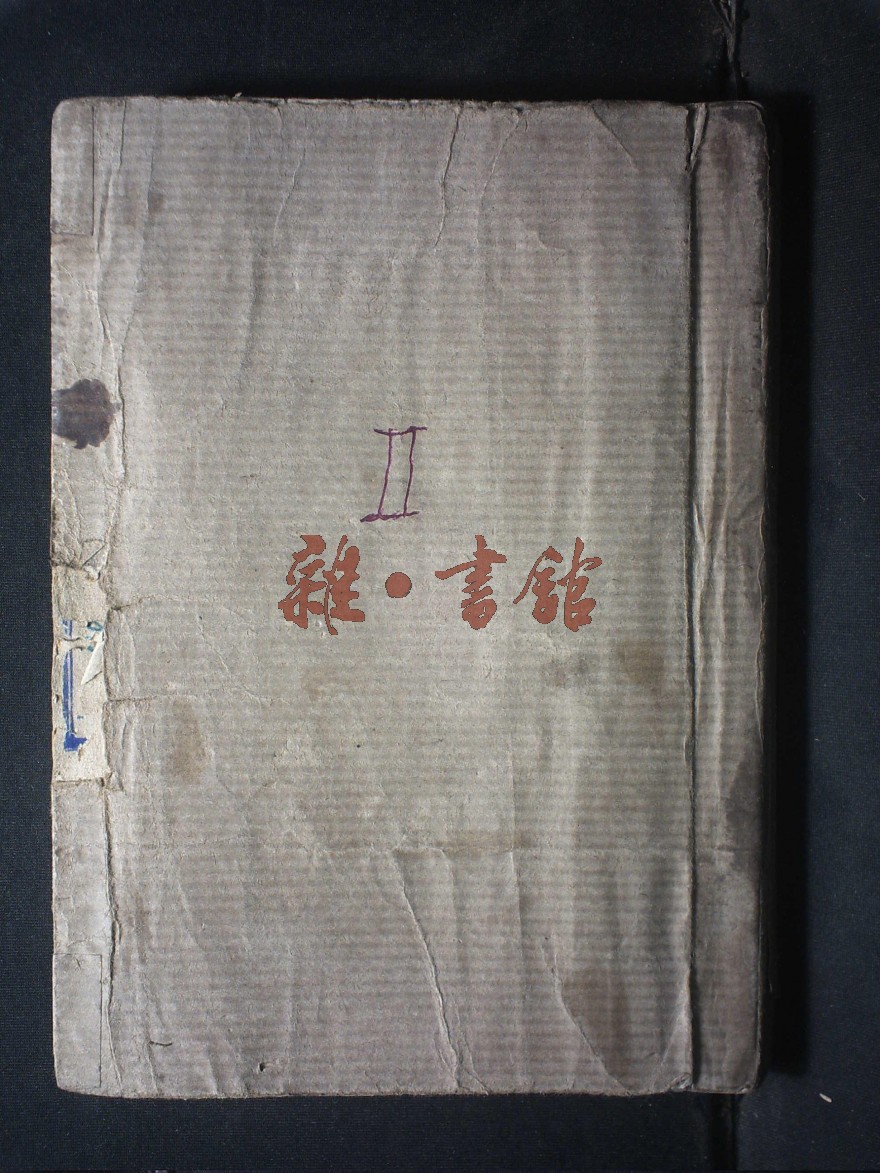 II
雜·書館